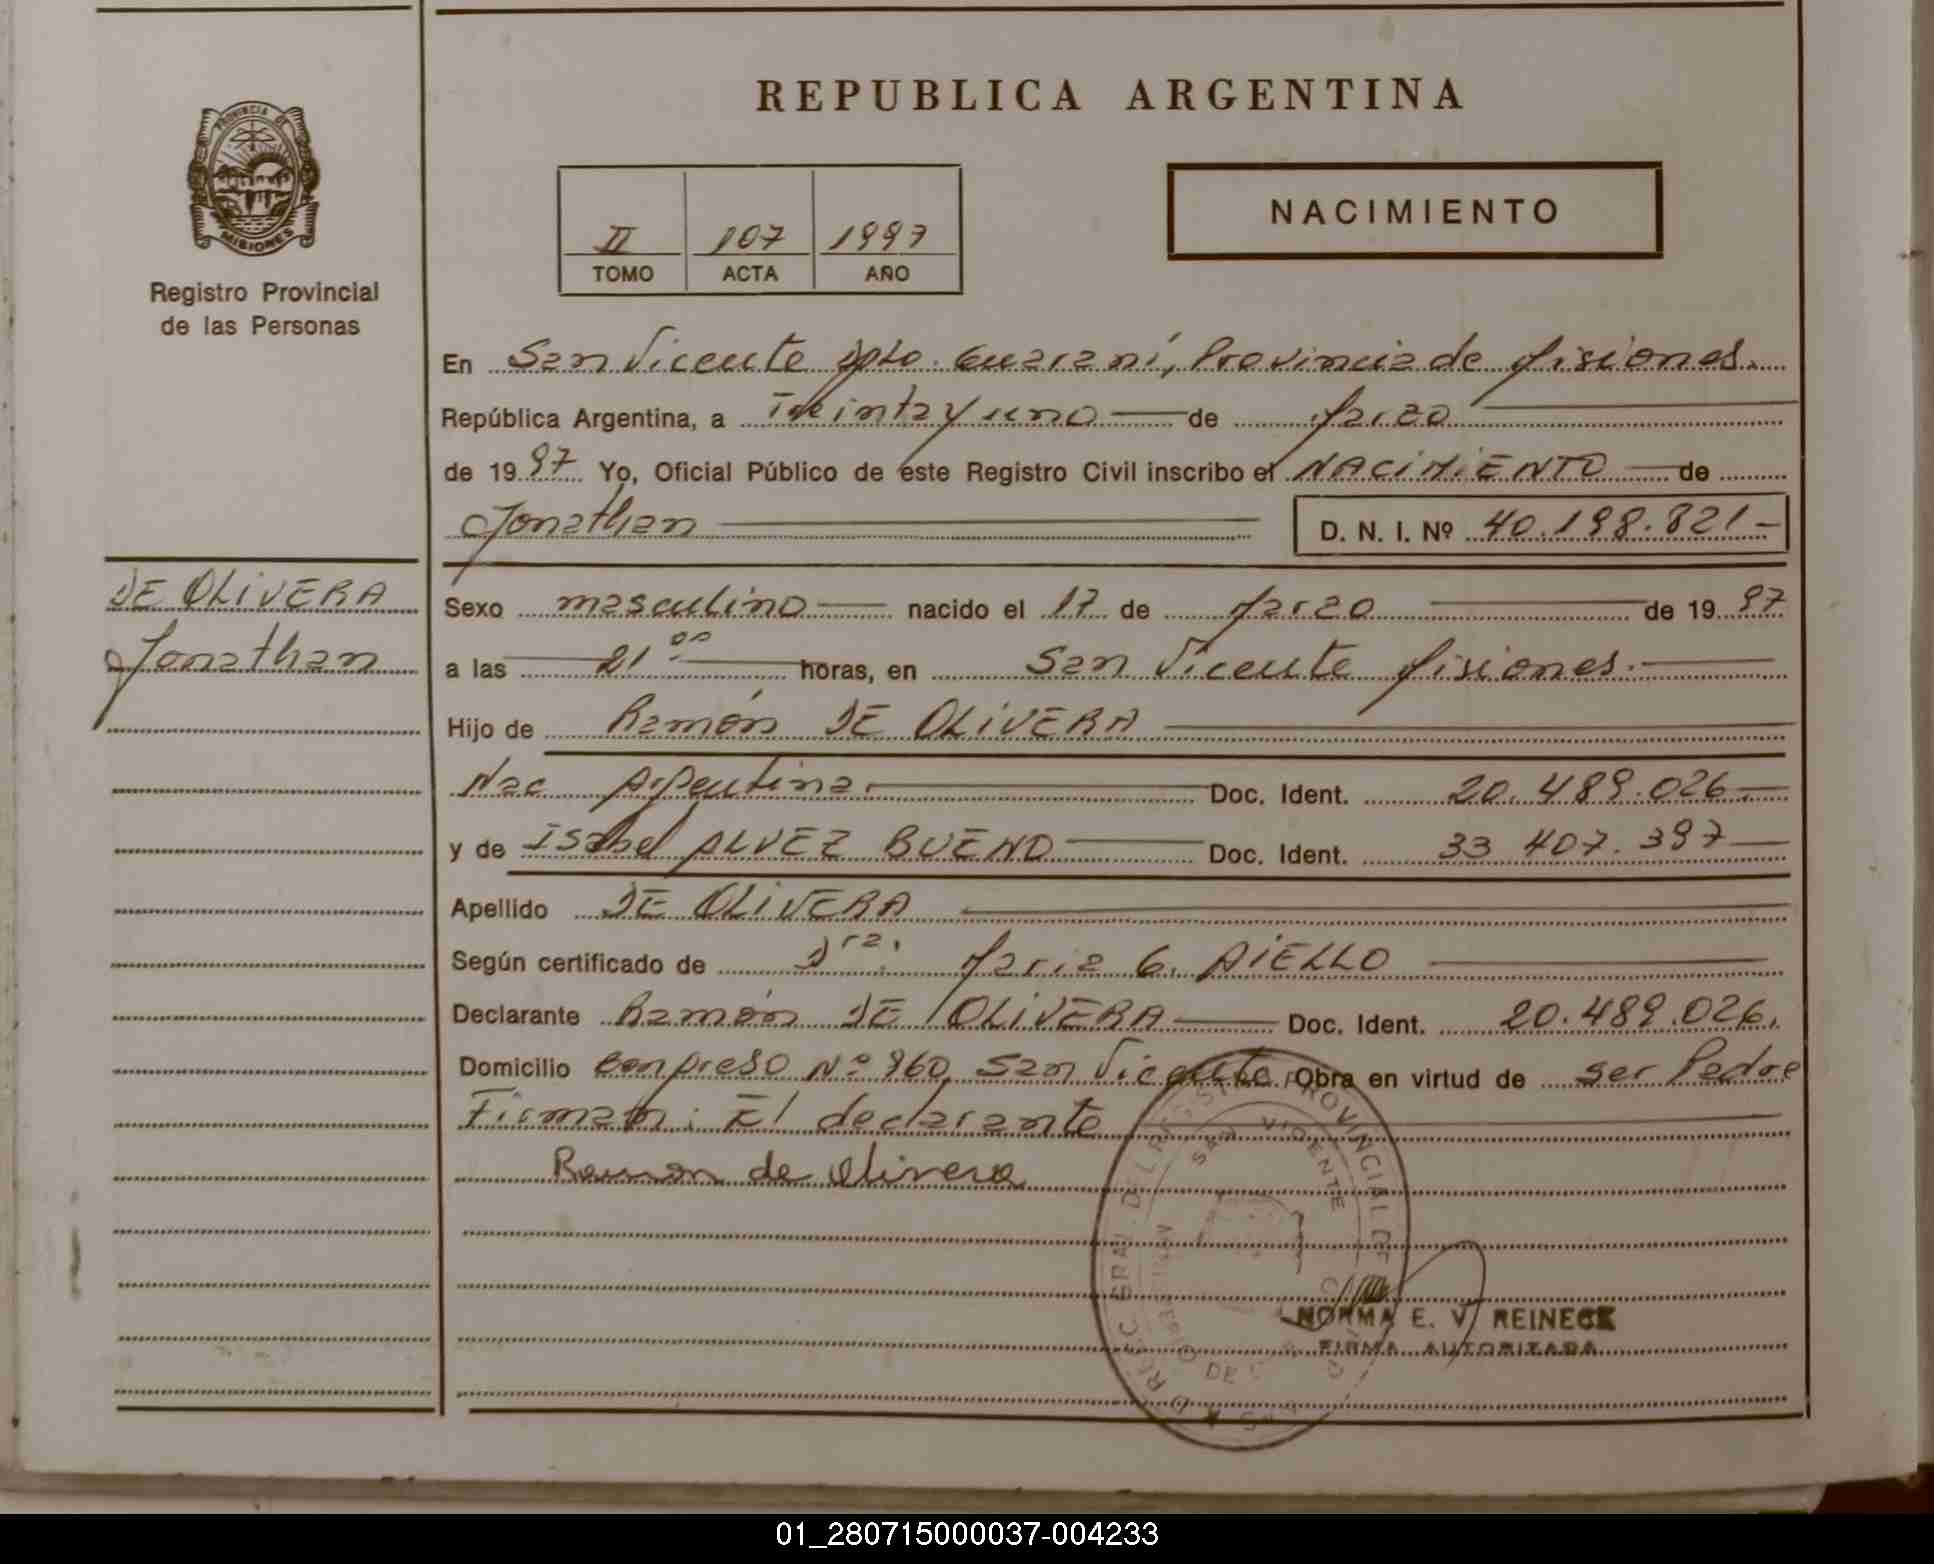 REPUBLICA ARGENTINA
PROVINCIA DE
MISIONES
Registro Provincial
de las Personas
II 107 1997
TOMO ACTA AÑO
NACIMIENTO
En San Vicente Dpto. Guaraní, Provincia de Misiones.
República Argentina, a Treinta y uno de Marzo
de 1997 Yo, Oficial Público de este Registro Civil inscribo el NACIMIENTO de
Jonathan D. N. I. Nº 40.198.821-
DE OLIVERA
Jonathan
Sexo masculino nacido el 17 de Marzo de 1997
a las 21 00 horas, en San Vicente Misiones.
Hijo de Ramón DE OLIVERA
Nac Argentina. Doc. Ident. 20.489.026.
y de Isabel ALVEZ BUENO Doc. Ident. 33 407.397
Apellido DE OLIVERA
Según certificado de Dra. Maria G. AIELLO
Declarante Ramón DE OLIVERA Doc. Ident. 20.489.026.
Domicilio Congreso Nº 960, San Vicente. Obra en virtud de ser Padre
Firman: El declarante
Ramon de Olivera
SAN VICENTE
NORMA E. V. REINECK
FIRMA AUTORIZADA
01_280715000037-004233